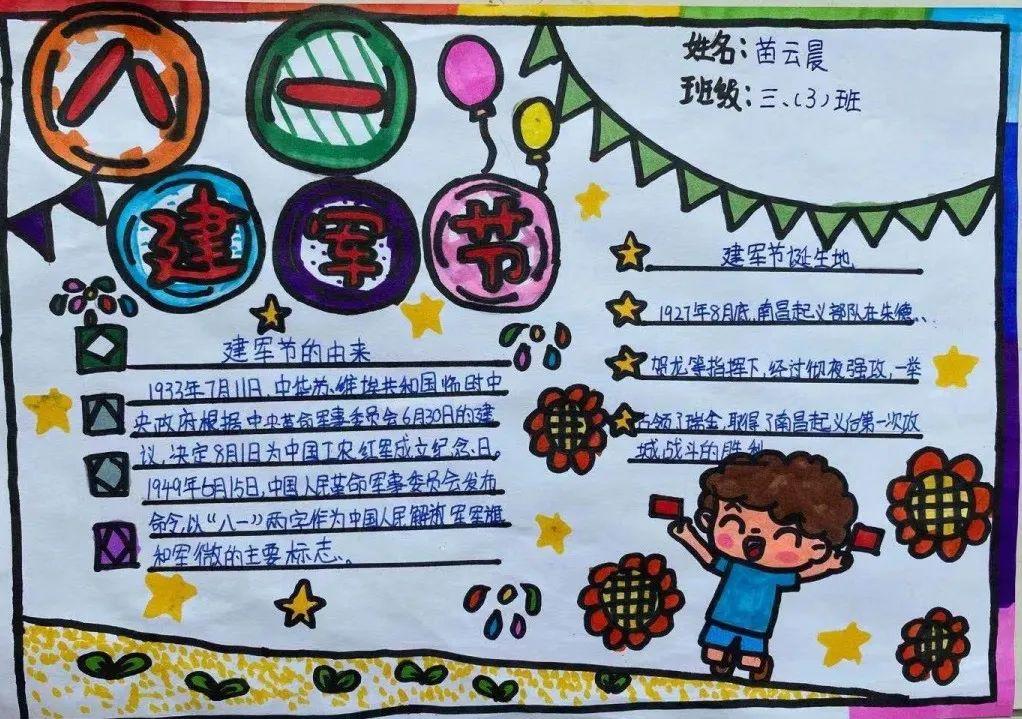 八一
建军节
姓名：苗云晨
班级：三、（3）班
建军节的由来
1933年7月11日，中华苏维埃共和国临时中
央政府根据中央革命军事委员会6月30日的建
议，决定8月1日为中国工农红军成立纪念日。
1949年6月15日，中国人民革命军事委员会发布
命令，以“八一”两字作为中国人民解放军军旗
和军微的主要标志。
建军节诞生地
1927年8月底，南昌起义部队在朱德、
贺龙等指挥下，经讨彻夜强攻，一举
占领了瑞金，取得了南昌起义后第一次攻
城战斗的胜利